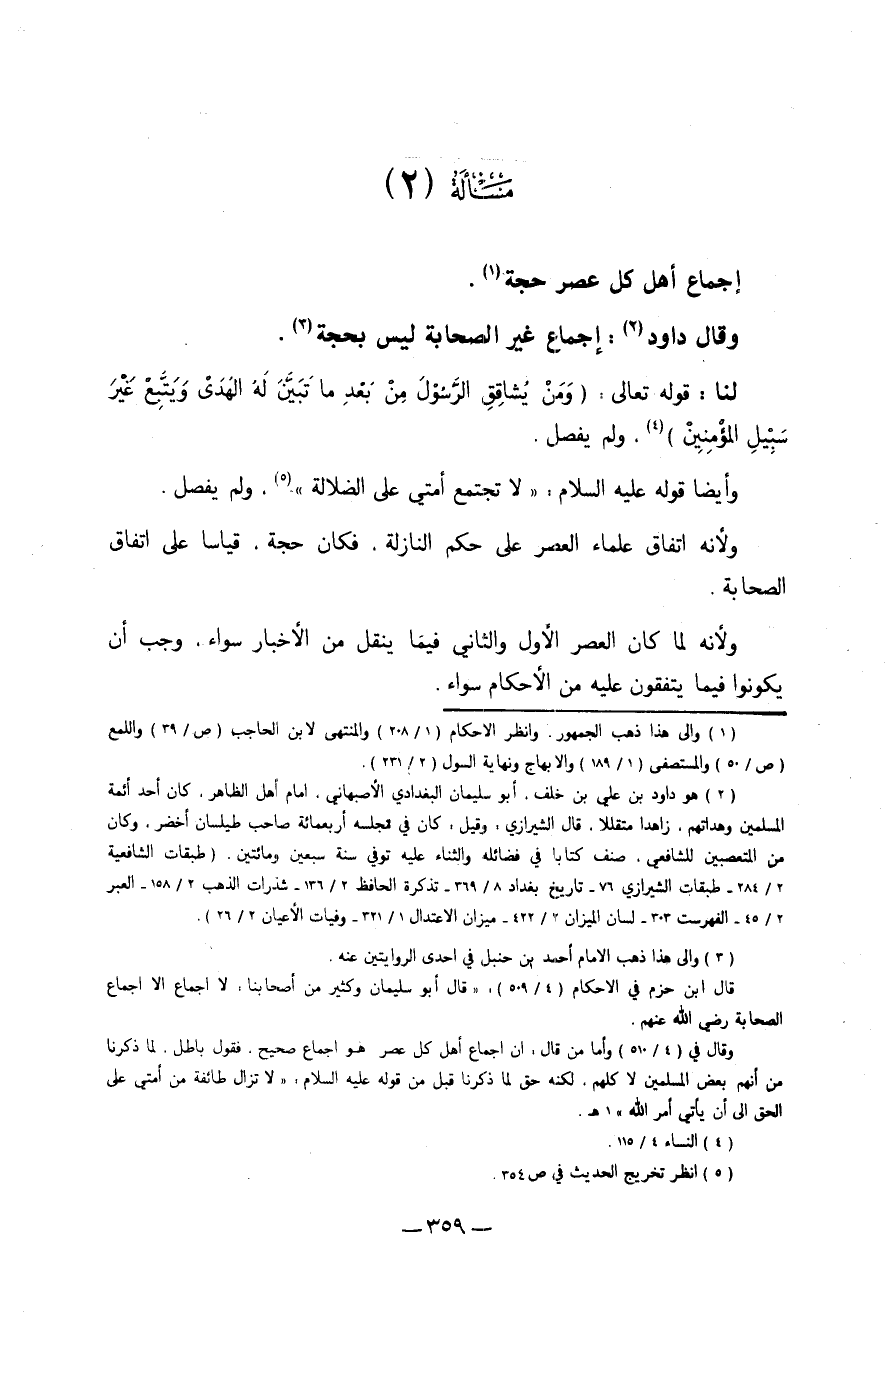 مَسْأَلَة (٢)
إجماع أهل كل عصر حجة(١) .
وقال داود(٢) : إجماع غير الصحابة ليس بحجة(٣) .
لنا : قوله تعالى : ( وَمَنْ يُشاقِقِ الرَّسُوْلَ مِنْ بَعْدِ ما تَبَيَّنَ لَهُ الهُدَىْ وَيَتَّبِعْ غَيْرَ
سَبِيْلِ المُؤْمِنِيْنَ )(٤) ، ولم يفصل .
وأيضا قوله عليه السلام : « لا تجتمع أمتي على الضلالة »(٥) ، ولم يفصل .
ولأنه اتفاق علماء العصر على حكم النازلة ، فكان حجة ، قياسا على اتفاق
الصحابة .
ولأنه لما كان العصر الأول والثاني فيما ينقل من الأخبار سواء ، وجب أن
يكونوا فيما يتفقون عليه من الأحكام سواء .
( ١ ) والى هذا ذهب الجمهور . وانظر الاحكام ( ١ / ٢٠٨ ) والمنتهى لابن الحاجب ( ص / ٣٩ ) واللمع
( ص / ٥٠ ) والمستصفى ( ١ / ١٨٩ ) والابهاج ونهاية السول ( ٢ / ٢٣١ ) .
( ٢ ) هو داود بن علي بن خلف ، أبو سليمان البغدادي الأصبهاني ، امام أهل الظاهر ، كان أحد أئمة
المسلمين وهداتهم ، زاهدا متقللا ، قال الشيرازي : وقيل : كان في مجلسه أربعمائة صاحب طيلسان أخضر ، وكان
من المتعصبين للشافعي ، صنف كتابا في فضائله والثناء عليه توفي سنة سبعين ومائتين . ( طبقات الشافعية
٢ / ٢٨٤ ـ طبقات الشيرازي ٧٦ ـ تاريخ بغداد ٨ / ٣٦٩ ـ تذكرة الحافظ ٢ / ١٣٦ ـ شذرات الذهب ٢ / ١٥٨ ـ العبر
٢ / ٤٥ ـ الفهرست ٣٠٣ ـ لسان الميزان ٢ / ٤٢٢ ـ ميزان الاعتدال ١ / ٣٢١ ـ وفيات الأعيان ٢ / ٢٦ ) .
( ٣ ) والى هذا ذهب الامام أحمد بن حنبل في احدى الروايتين عنه .
قال ابن حزم في الاحكام ( ٤ / ٥٠٩ ) : « قال أبو سليمان وكثير من أصحابنا : لا اجماع الا اجماع
الصحابة رضي الله عنهم .
وقال في ( ٤ / ٥١٠ ) وأما من قال : ان اجماع أهل كل عصر هو اجماع صحيح ، فقول باطل ، لما ذكرنا
من أنهم بعض المسلمين لا كلهم ، لكنه حق لما ذكرنا قبل من قوله عليه السلام : « لا تزال طائفة من أمتي على
الحق الى أن يأتي أمر الله » ١ هـ .
( ٤ ) النساء ٤ / ١١٥ .
( ٥ ) انظر تخريج الحديث في ص ٣٥٤ .
— ٣٥٩ —